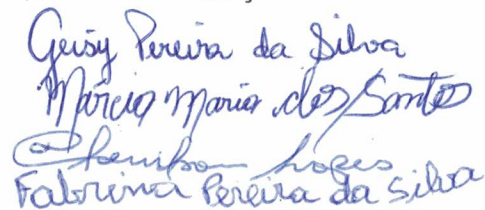 Geisy Pereira da Silva
Marcia Maria dos Santos
Lopes
Fabrina Pereira da Silva